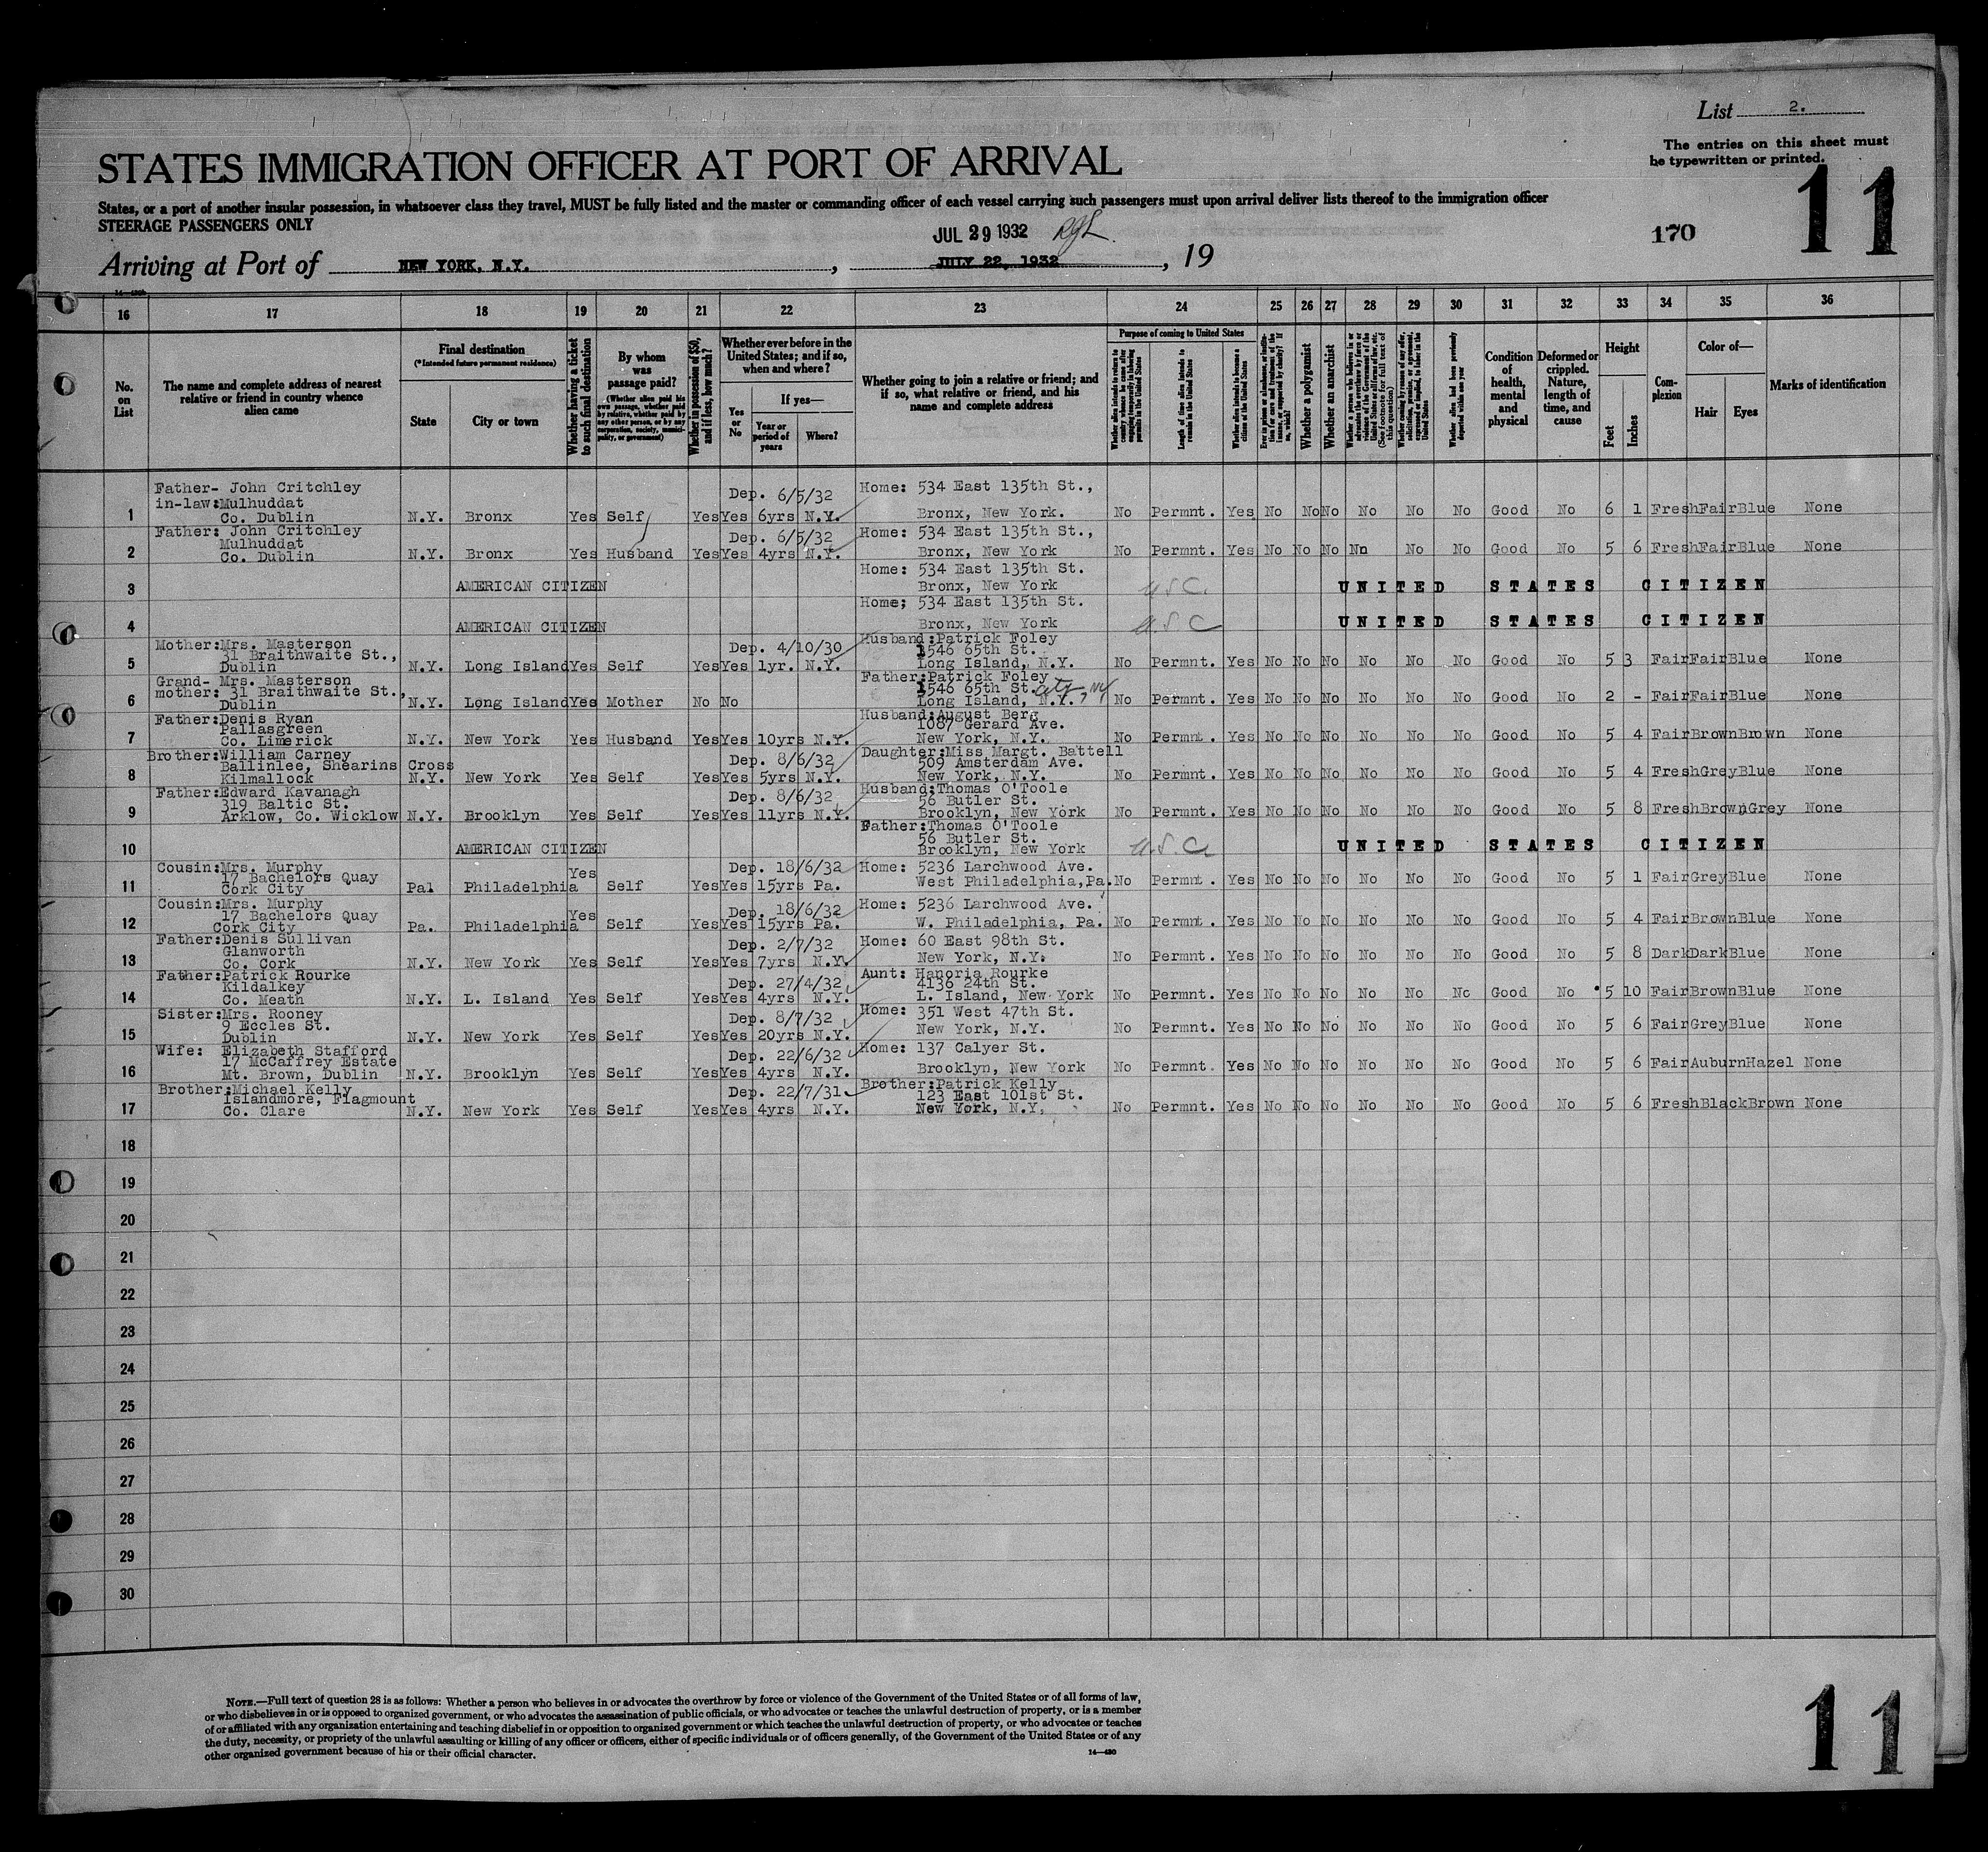 List 2.
The entries on this sheet must
be typewritten or printed.
11
STATES IMMIGRATION OFFICER AT PORT OF ARRIVAL
States, or a port of another insular possession, in whatsoever class they travel, MUST be fully listed and the master or commanding officer of each vessel carrying such passengers must upon arrival deliver lists thereof to the immigration officer
STEERAGE PASSENGERS ONLY
JUL 29 1932
170
Arriving at Port of NEW YORK, N.Y., JULY 22, 1932, 19
16 17 18 19 20 21 22 23 24 25 26 27 28 29 30 31 32 33 34 35 36
No. on List
The name and complete address of nearest relative or friend in country whence alien came
Final destination
(*Intended future permanent residence)
State
City or town
Whether having a ticket to such final destination
By whom was passage paid?
(Whether alien paid his own passage, whether paid by relative, whether paid by any other person, or by any corporation, society, municipality, or government)
Whether in possession of $50, and if less, how much?
Whether ever before in the United States; and if so, when and where?
Yes or No
If yes—
Year or period of years
Where?
Whether going to join a relative or friend; and if so, what relative or friend, and his name and complete address
Purpose of coming to United States
Length of time alien intends to remain in the United States
Whether alien intends to become a citizen of the United States
Whether a polygamist
Whether an anarchist
Whether alien had been previously deported within one year
Condition of health, mental and physical
Deformed or crippled. Nature, length of time, and cause
Height
Feet
Inches
Complexion
Color of—
Hair
Eyes
Marks of identification
1 Father- John Critchley
in-law:Mulhuddat Dep. 6/5/32 Home: 534 East 135th St.,
Co. Dublin N.Y. Bronx Yes Self Yes Yes 6yrs N.Y. Bronx, New York. No Permnt. Yes No No No No No No Good No 6 1 Fresh Fair Blue None
2 Father: John Critchley
Mulhuddat Dep. 6/5/32 Home: 534 East 135th St.,
Co. Dublin N.Y. Bronx Yes Husband Yes Yes 4yrs N.Y. Bronx, New York No Permnt. Yes No No No Nn No No Good No 5 6 Fresh Fair Blue None
3 AMERICAN CITIZEN Home: 534 East 135th St.
Bronx, New York U.S.C. UNITED STATES CITIZEN
4 AMERICAN CITIZEN Home; 534 East 135th St.
Bronx, New York U.S.C UNITED STATES CITIZEN
5 Mother:Mrs. Masterson Husband:Patrick Foley
31 Braithwaite St., Dep. 4/10/30 1546 65th St.
Dublin N.Y. Long Island Yes Self Yes Yes 1yr. N.Y. Long Island, N.Y. No Permnt. Yes No No No No No No Good No 5 3 Fair Fair Blue None
6 Grand- Mrs. Masterson Father:Patrick Foley
mother: 31 Braithwaite St., 1546 65th St.
Dublin N.Y. Long Island Yes Mother No No Long Island, N.Y. No Permnt. Yes No No No No No No Good No 2 - Fair Fair Blue None
7 Father:Denis Ryan Husband:August Berg
Pallasgreen 1087 Gerard Ave.
Co. Limerick N.Y. New York Yes Husband Yes Yes 10yrs N.Y. New York, N.Y. No Permnt. Yes No No No No No No Good No 5 4 Fair Brown Brown None
8 Brother:William Carney Daughter:Miss Margt. Battell
Ballinlee, Shearins Cross Dep. 8/6/32 509 Amsterdam Ave.
Kilmallock N.Y. New York Yes Self Yes Yes 5yrs N.Y. New York, N.Y. No Permnt. Yes No No No No No No Good No 5 4 Fresh Grey Blue None
9 Father:Edward Kavanagh Husband:Thomas O'Toole
319 Baltic St. Dep. 8/6/32 56 Butler St.
Arklow, Co. Wicklow N.Y. Brooklyn Yes Self Yes Yes 11yrs N.Y. Brooklyn, New York No Permnt. Yes No No No No No No Good No 5 8 Fresh Brown Grey None
10 Father:Thomas O'Toole
56 Butler St.
AMERICAN CITIZEN Brooklyn, New York U.S.C. UNITED STATES CITIZEN
11 Cousin:Mrs. Murphy Dep. 18/6/32 Home: 5236 Larchwood Ave.
17 Bachelors Quay
Cork City Pal Philadelphia Yes Self Yes Yes 15yrs Pa. West Philadelphia,Pa. No Permnt. Yes No No No No No No Good No 5 1 Fair Grey Blue None
12 Cousin:Mrs. Murphy Dep. 18/6/32 Home: 5236 Larchwood Ave.
17 Bachelors Quay
Cork City Pa. Philadelphia Yes Self Yes Yes 15yrs Pa. W. Philadelphia, Pa. No Permnt. Yes No No No No No No Good No 5 4 Fair Brown Blue None
13 Father:Denis Sullivan
Glanworth Dep. 2/7/32 Home: 60 East 98th St.
Co. Cork N.Y. New York Yes Self Yes Yes 7yrs N.Y. New York, N.Y. No Permnt. Yes No No No No No No Good No 5 8 Dark Dark Blue None
14 Father:Patrick Rourke Aunt: Hanoria Rourke
Kildalkey Dep. 27/4/32 4136 24th St.
Co. Meath N.Y. L. Island Yes Self Yes Yes 4yrs N.Y. L. Island, New York No Permnt. Yes No No No No No No Good No 5 10 Fair Brown Blue None
15 Sister:Mrs. Rooney Home: 351 West 47th St.
9 Eccles St. Dep. 8/7/32
Dublin N.Y. New York Yes Self Yes Yes 20yrs N.Y. New York, N.Y. No Permnt. Yes No No No No No No Good No 5 6 Fair Grey Blue None
16 Wife: Elizabeth Stafford Home: 137 Calyer St.
17 McCaffrey Estate Dep. 22/6/32
Mt. Brown, Dublin N.Y. Brooklyn Yes Self Yes Yes 4yrs N.Y. Brooklyn, New York No Permnt. Yes No No No No No No Good No 5 6 Fair Auburn Hazel None
17 Brother:Michael Kelly Brother:Patrick Kelly
Islandmore, Flagmount Dep. 22/7/31 123 East 101st St.
Co. Clare N.Y. New York Yes Self Yes Yes 4yrs N.Y. New York, N.Y. No Permnt. Yes No No No No No No Good No 5 6 Fresh Black Brown None
18
19
20
21
22
23
24
25
26
27
28
29
30
NOTE.—Full text of question 28 is as follows: Whether a person who believes in or advocates the overthrow by force or violence of the Government of the United States or of all forms of law,
or who disbelieves in or is opposed to organized government, or who advocates the assassination of public officials, or who advocates or teaches the unlawful destruction of property, or is a member
of or affiliated with any organization entertaining and teaching disbelief in or opposition to organized government or which teaches the unlawful destruction of property, or who advocates or teaches
the duty, necessity, or propriety of the unlawful assaulting or killing of any officer or officers, either of specific individuals or of officers generally, of the Government of the United States or of any
other organized government because of his or their official character.
14—430
11